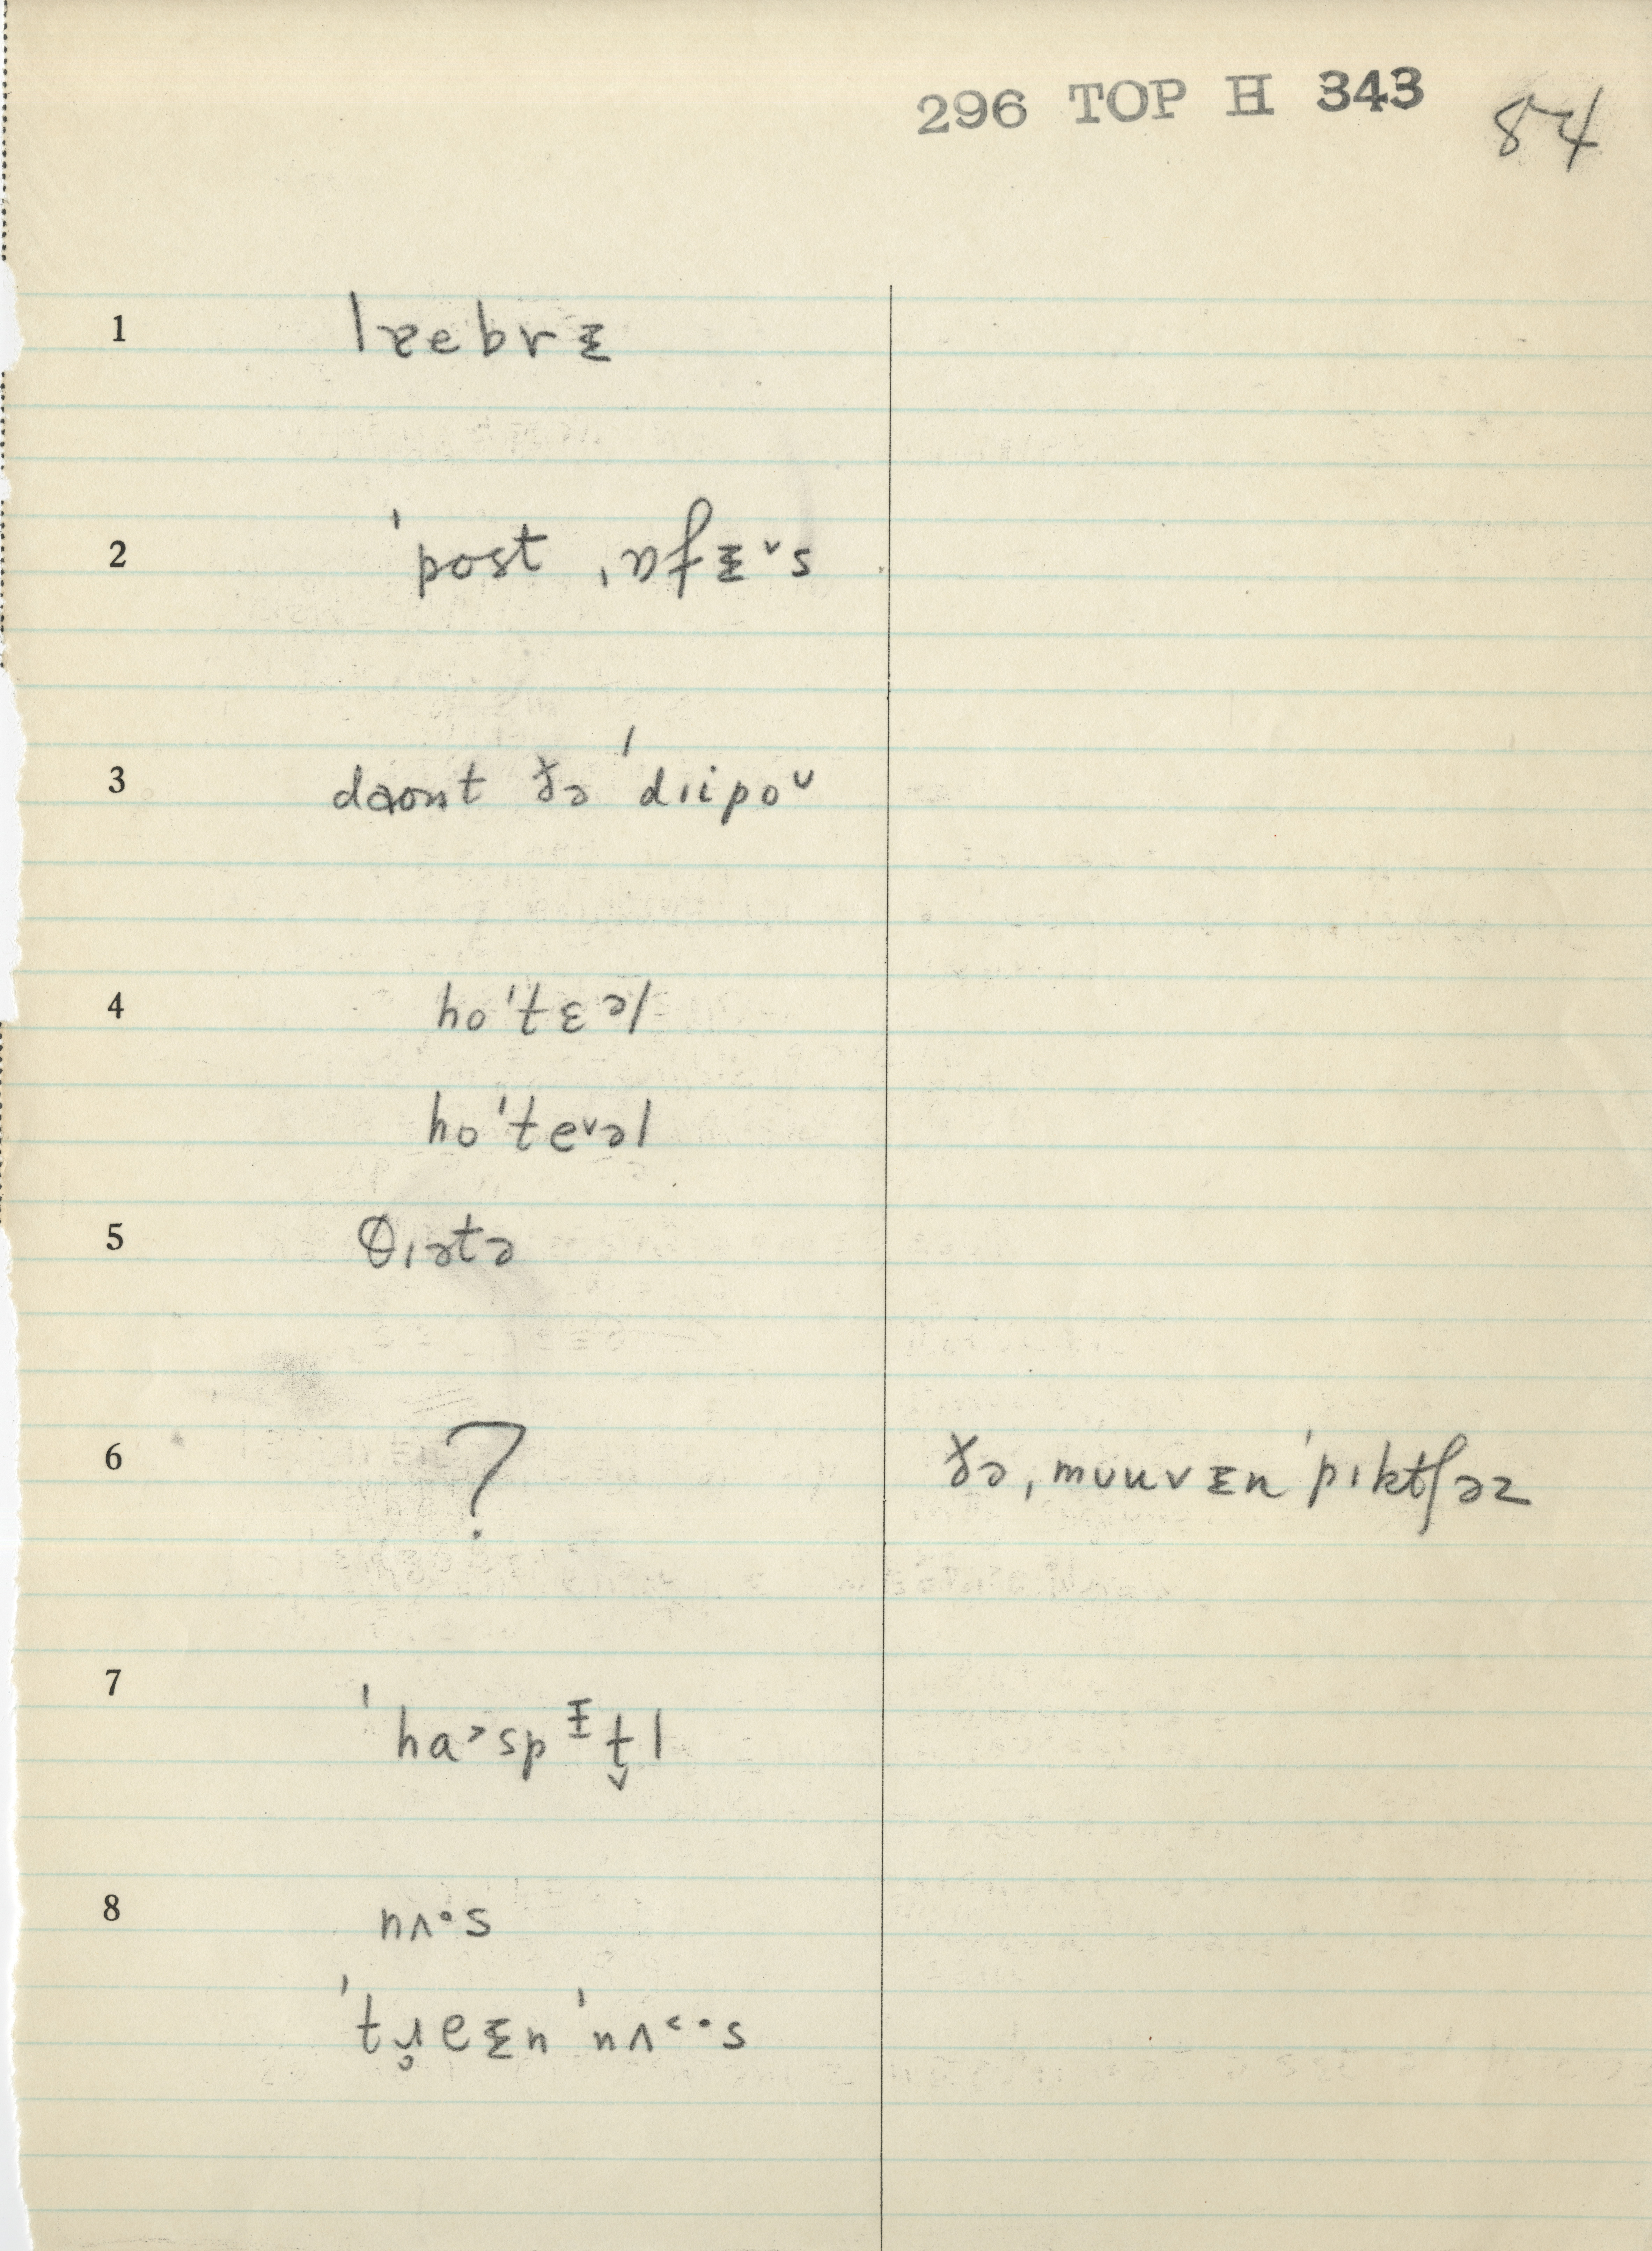 296 TOP H 343 84
1 lɪebrɪ̵
2 ˈpost ˌɒfɪ̵˅s
3 daʊnt ðə ˈdɪipo˅
4 hoˈtɛəl
hoˈte˅əl
5 θɪətə
6 ? ðə ˌmʊuvɪ̵n ˈpɪktʃəz
7 ˈha˃spɪ̵t̬l
8 nʌ·s
ˈtɹ̥eɪ̵n ˈnʌ˂·s